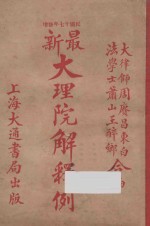 民國十七年增訂
最新
大理院解釋例
大律師周東白
法學士蕭山王醉鄉
上海大通書局出版